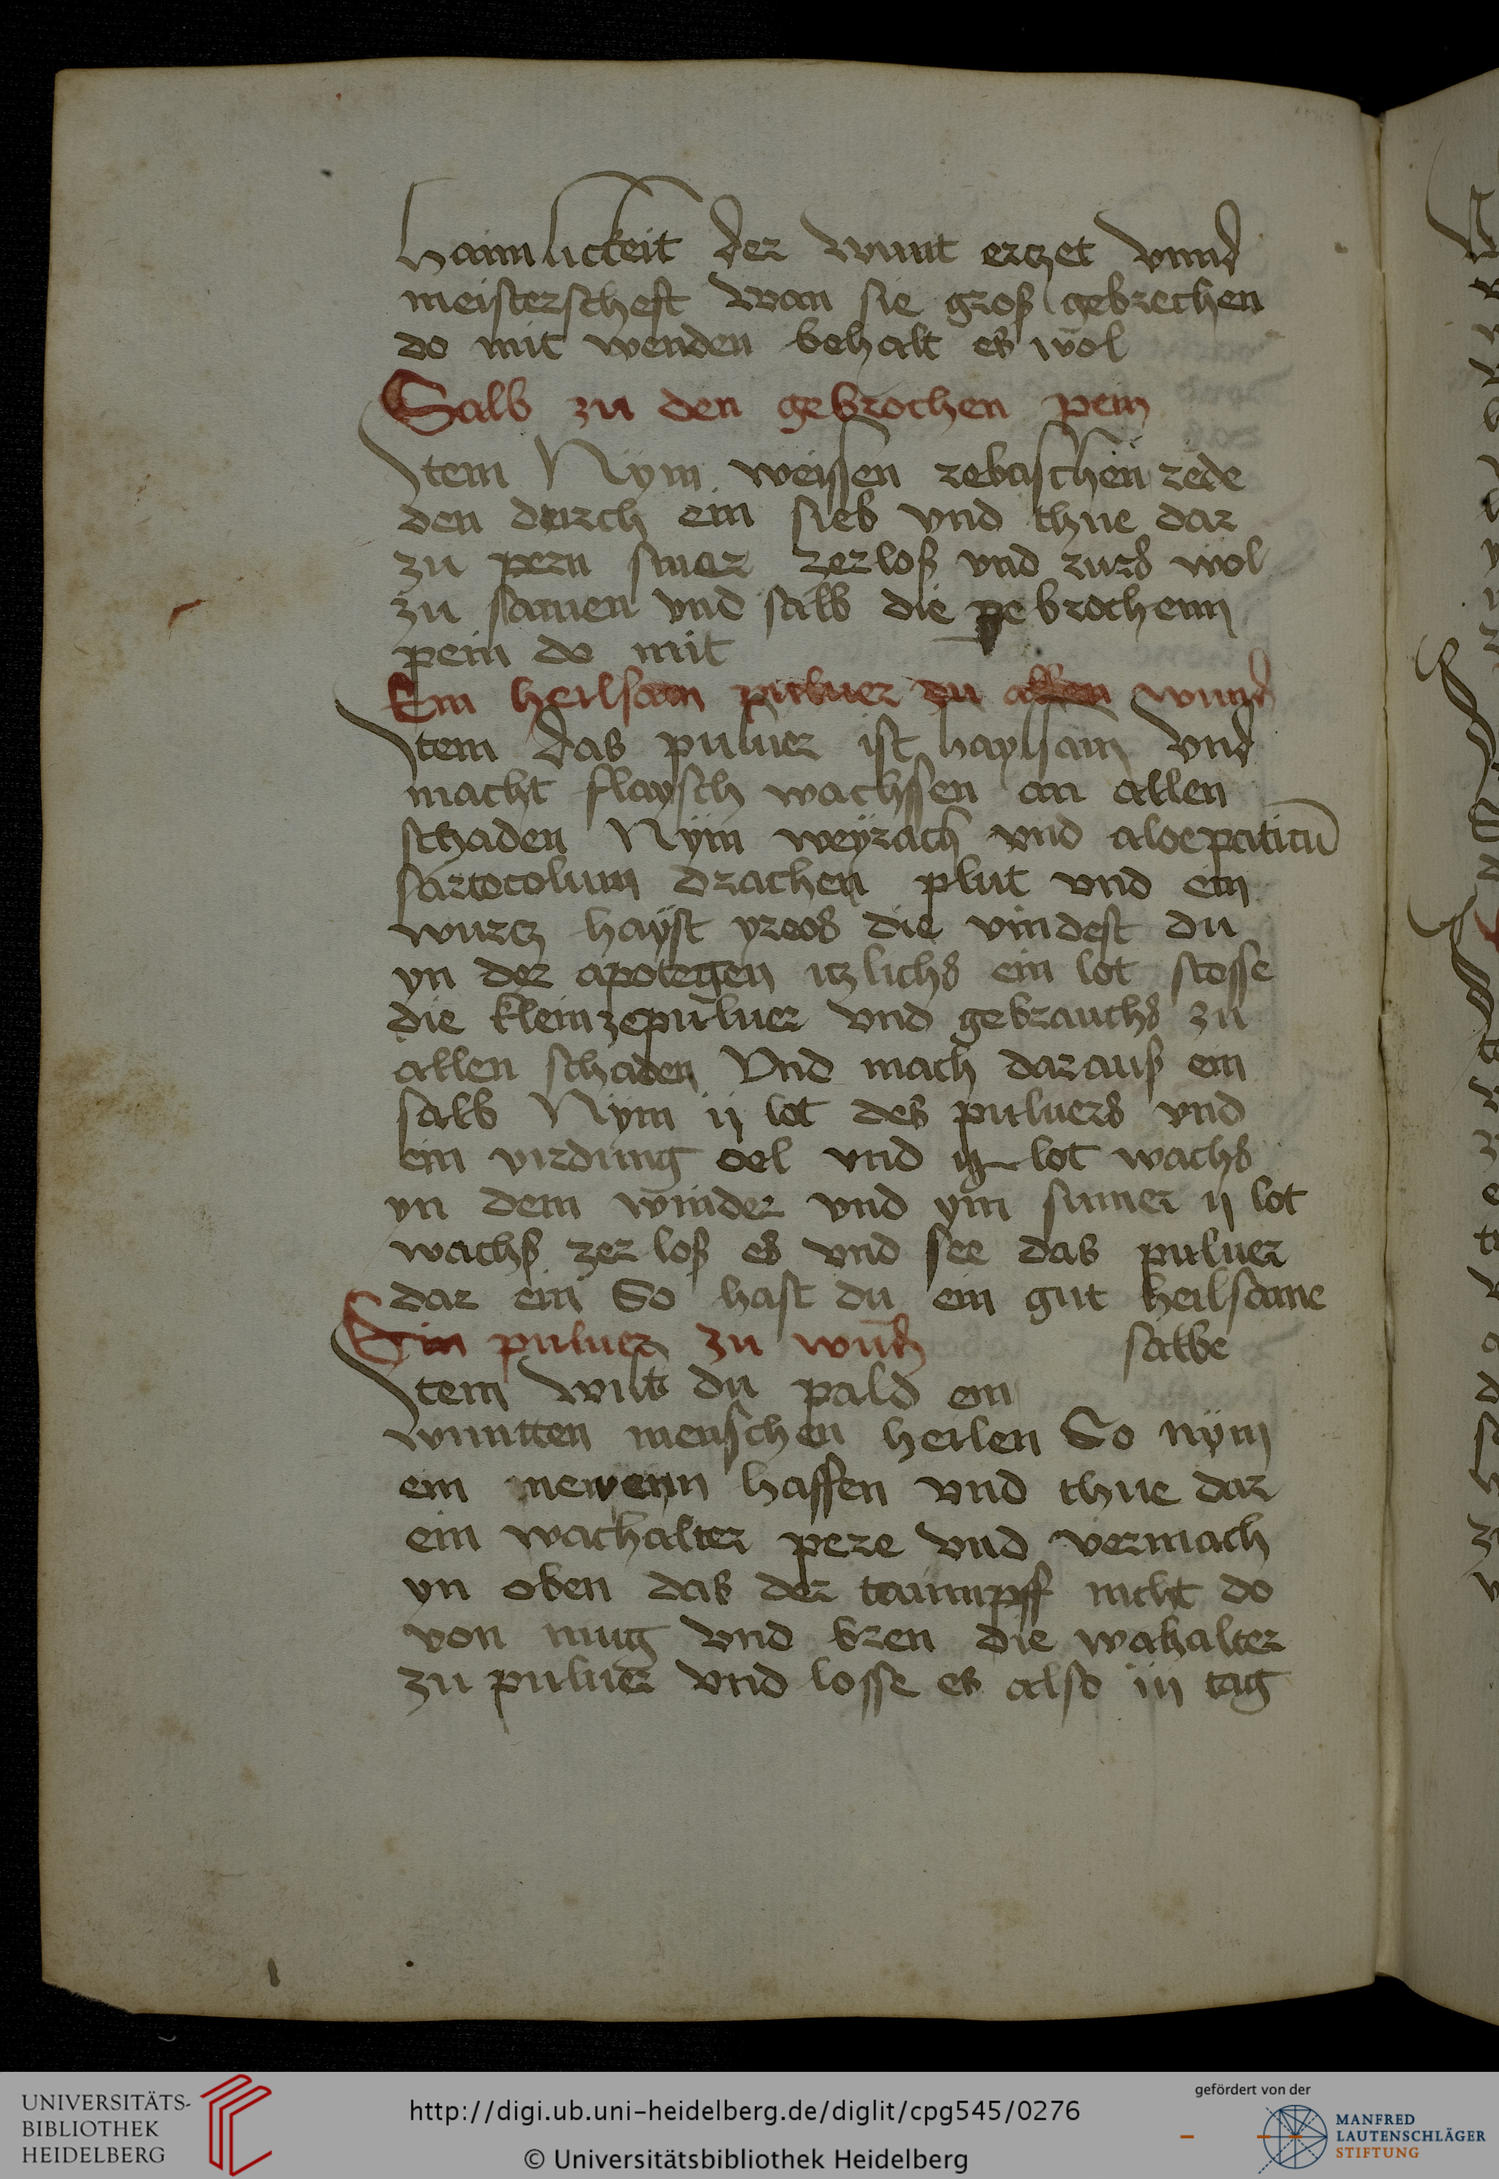 haimlickeit der wunt erczet vnnd
meisterscheft wan sie groß gebrechen
do mit wenden behalt es wol
Salb zu den gebrochen pein
Item Nym weissen rede
den durch ein sieb vnd thue dar
zu pern smer zerloß vnd rurs wol
zu samen vnd salb die gebrochenn
pein do mit
Ein heilsam puluer zu allen wund
Item das puluer ist haylsam vnd
macht flaysch wachssen an allen
schaden Nym weyrach vnd aloepaticū
sartocolum drachen plut vnd ein
wurcz hayst yreos die vindest du
yn der apotegen itzlichs ein lot stosse
die klein zepuluer vnd gebrauchs zu
allen schaden Vnd mach darauß ein
salb Nym ij lot des puluers vnd
ein virdung oel vnd lot wachs
yn dem winder vnd ym sumer ij lot
wachs zerloß es vnd see das puluer
dar ein So hast du ein gut heilsame
salbe
Ein puluer zu wund
Item wilt du pald ein
wuntten menschen heilen So nym
ein newenn haffen vnd thue dar
ein wachalter pere vnd vermach
yn oben das der tampff nicht do
von mug vnd bren die wahalter
zu puluer vnd losse es also iij tag
UNIVERSITÄTS-
BIBLIOTHEK
HEIDELBERG
http://digi.ub.uni-heidelberg.de/diglit/cpg545/0276
© Universitätsbibliothek Heidelberg
gefördert von der
MANFRED
LAUTENSCHLÄGER
STIFTUNG